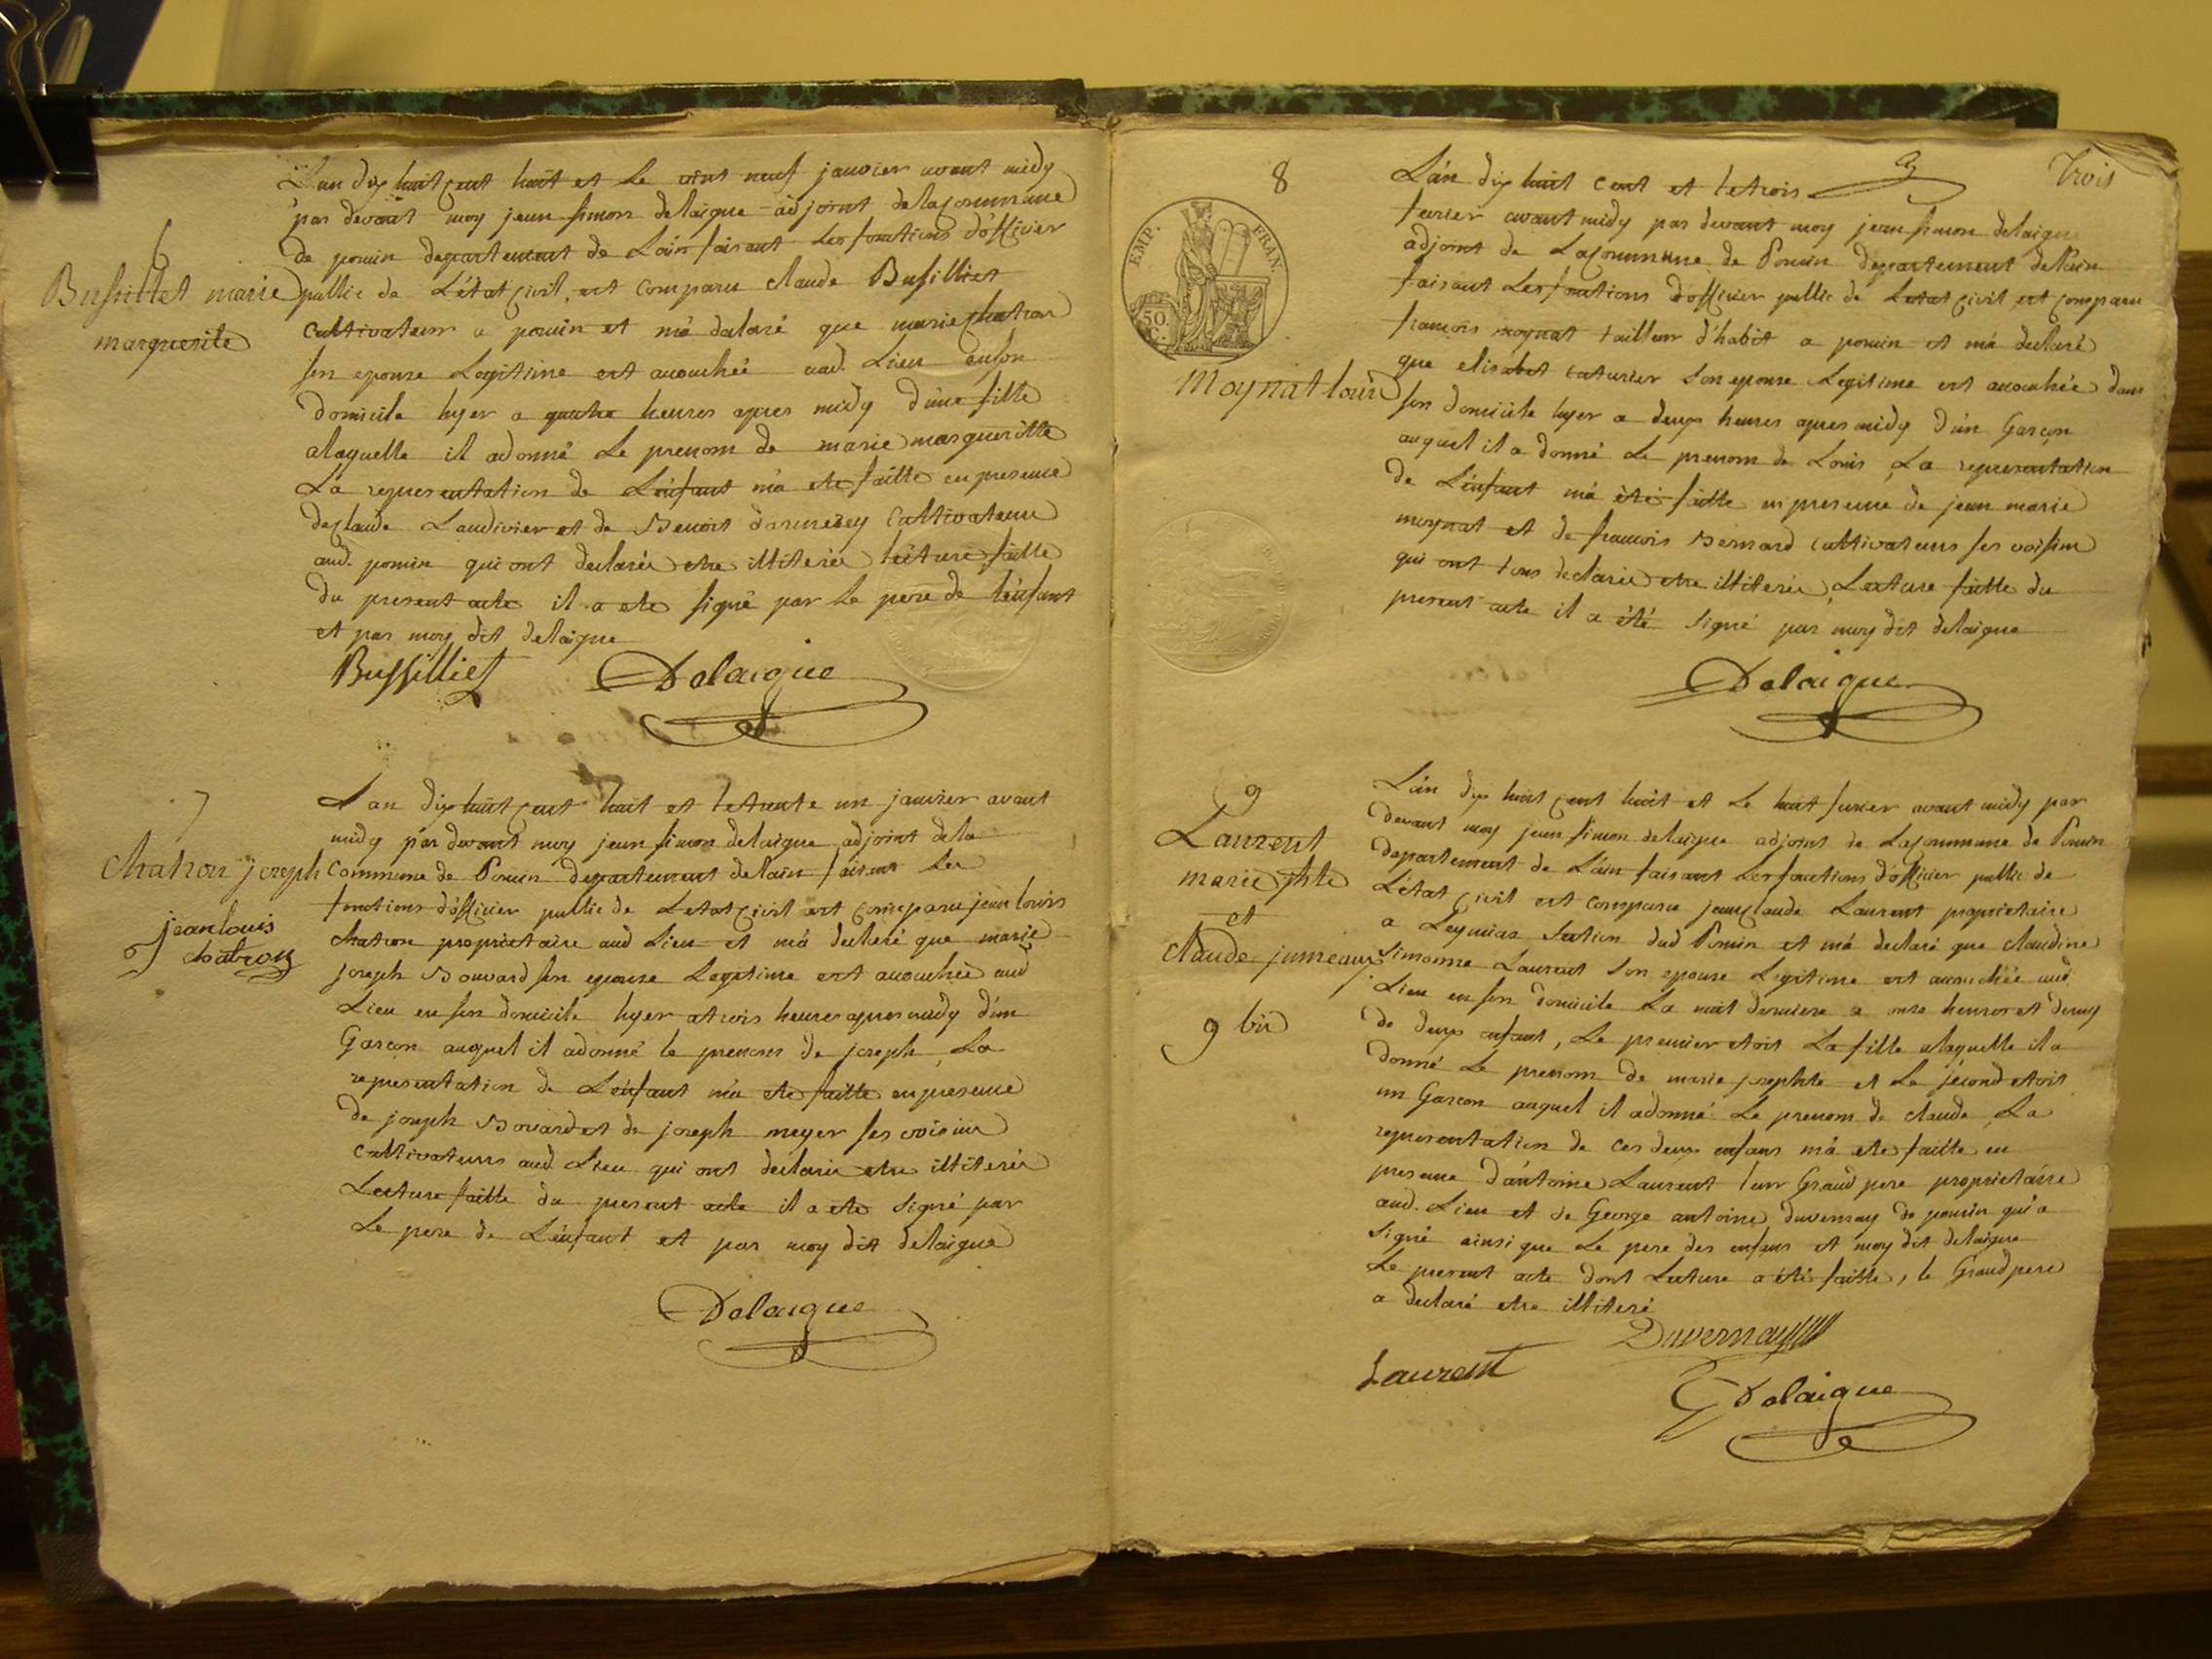 L'an dix huit cent huit et le vint neuf janvier avant midy
par devant moy jean simon delaigue adjoint de la commune
de poncin departement de L'ain faisant les fonctions d'officier
6
Bussillet marie
marguerite
public de L'état civil, est comparu claude Bussilliet
cultivateur a poncin et m'a declaré que marie chatron
son epouse Legitime est accouchée aud. Lieu en son
domicile hyer a quatre heures apres midy d'une fille
alaquelle il a donné Le prenom de marie margueritte
La representation de L'enfant m'a ete faitte en presence
de claude Laudivier et de Benoit cultivateurs
aud. poncin qui ont declarés etre illiterés lecture faitte
du present acte il a ete signé par Le pere de l'enfant
et par moy dit delaigue
Bussilliet Delaigue
7
chatron joseph
jean louis
chatron
L'an dix huit cent huit et le trente un janvier avant
midy par devant moy jean simon delaigue adjoint de la
Commune de Poncin departement de l'ain faisant Les
fonctions d'officier public de L'etat civil est comparu jean louis
chatron proprietaire aud Lieu et m'a declaré que marie
joseph Bouvard son epouse Legitime est accouchée aud
Lieu en son domicile hyer a trois heures apres midy d'un
Garcon auquel il a donné le prenom de joseph La
representation de L'enfant m'a ete faitte en presence
de joseph Bovard et de joseph meyer ses voisins
cultivateurs aud Lieu qui ont declarés etre illiterés
Lecture faitte du present acte il a ete signé par
Le pere de L'enfant et par moy dit delaigue
Delaigue
Trois
8
EMP. FRAN.
50. C.
Moynat louis
L'an dix huit cent et le trois
fevrier avant midy par devant moy jean simon delaigue
adjoint de La commune de Poncin departement de l'ain
faisant Les fonctions d'officier public de L'etat civil est comparu
francois moynat tailleur d'habit a poncin et m'a declaré
que elisabet son epouse Legitime est accouchée dans
son domicile hyer a deux heures apres midy d'un Garcon
auquel il a donné Le prenom de Louis La representation
de L'enfant m'a été faitte en presence de jean marie
moynat et de francois Bernard cultivateurs ses voisins
qui ont tous declarés etre illiterés Lecture faitte du
present acte il a été signé par moy dit delaigue
Delaigue
9
Laurent
marie jphte
et
claude jumeaux
9 bis
L'an dix huit cent huit et Le huit fevrier avant midy par
devant moy jean simon delaigue adjoint de La commune de Poncin
departement de L'ain faisant Les fonctions d'officier public de
L'état civil est comparu jean claude Laurent proprietaire
a Leymiaz section dud Poncin et m'a declaré que claudine
Simonne Laurent son epouse Legitime est accouchée aud
Lieu en son domicile La nuit derniere a onze heures et demy
de deux enfant, Le premier etoit La fille alaquelle il a
donné Le prenom de marie josephte et Le second etoit
un Garcon auquel il a donné Le prenom de claude La
representation de ces deux enfans m'a ete faitte en
presence d'antoine Laurent leur Grand pere proprietaire
aud. Lieu et de George antoine duvernay de poncin qui a
signé ainsi que Le pere des enfans et moy dit delaigue
Le present acte dont Lecture a été faitte, le Grand pere
a declaré etre illiteré
Duvernay
Laurent
Delaigue